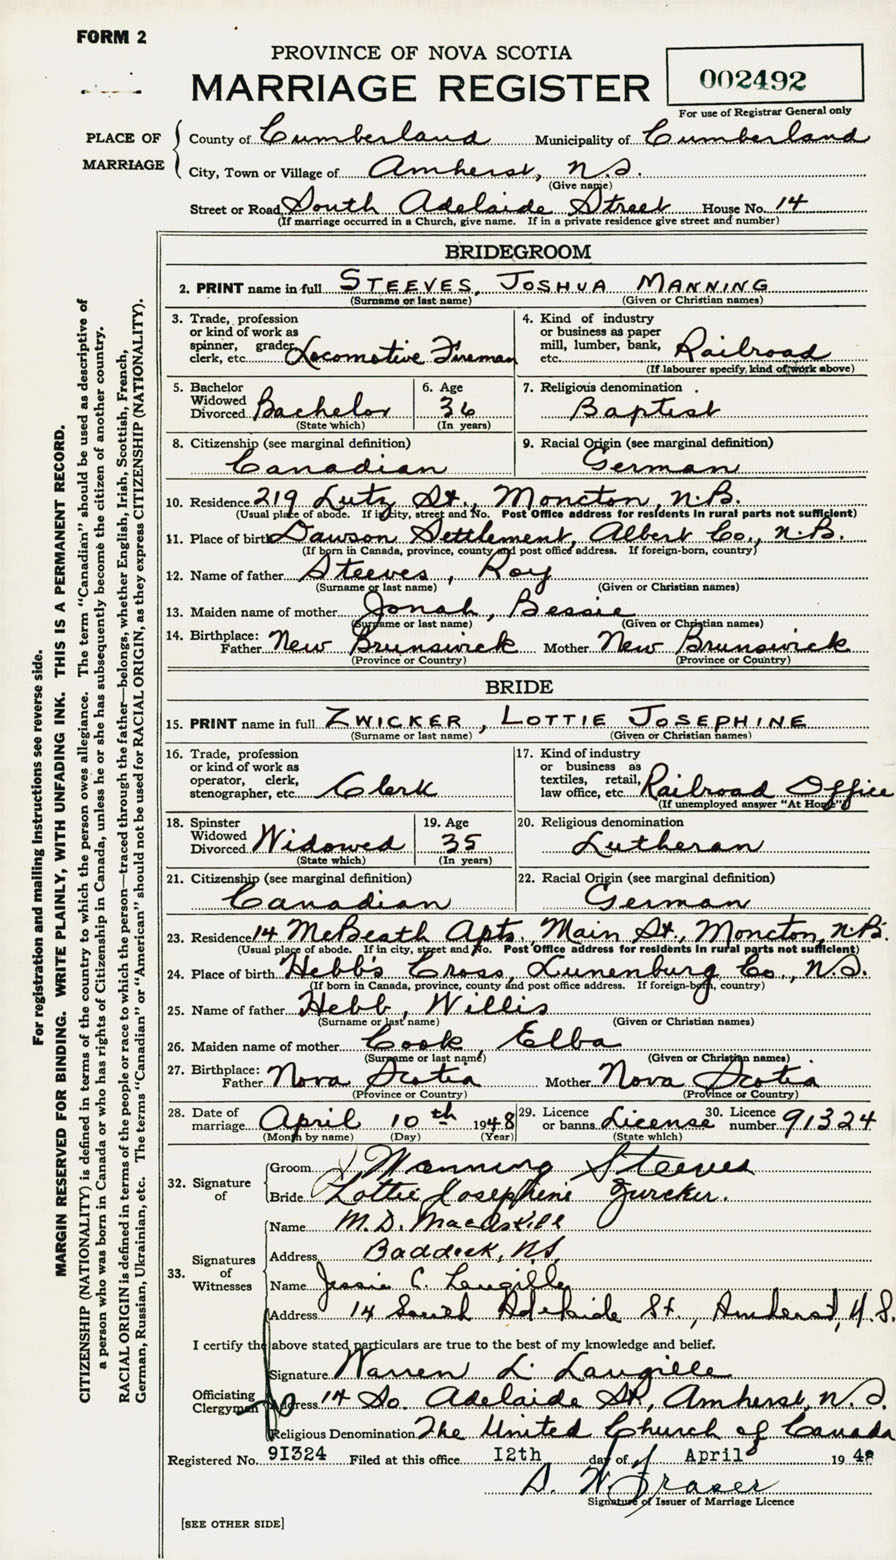 FORM 2
PROVINCE OF NOVA SCOTIA
MARRIAGE REGISTER
002492
For use of Registrar General only
PLACE OF MARRIAGE
County of Cumberland Municipality of Cumberland
City, Town or Village of Amherst, N.S.
(Give name)
Street or Road South Adelaide Street House No. 14
(If marriage occurred in a Church, give name. If in a private residence give street and number)
BRIDEGROOM
2. PRINT name in full STEEVES, JOSHUA MANNING
(Surname or last name) (Given or Christian names)
3. Trade, profession or kind of work as spinner, grader, clerk, etc. Locomotive Fireman
4. Kind of industry or business as paper mill, lumber, bank, etc. Railroad
(If labourer specify, kind of work above)
5. Bachelor Widowed Divorced Bachelor
(State which)
6. Age 36
(In years)
7. Religious denomination Baptist
8. Citizenship (see marginal definition) Canadian
9. Racial Origin (see marginal definition) German
10. Residence 219 Lutz St., Moncton, N.B.
(Usual place of abode. If in city, street and No. Post Office address for residents in rural parts not sufficient)
11. Place of birth Dawson Settlement, Albert Co., N.B.
(If born in Canada, province, county and post office address. If foreign-born, country)
12. Name of father Steeves, Roy
(Surname or last name) (Given or Christian names)
13. Maiden name of mother Jonah, Bessie
(Surname or last name) (Given or Christian names)
14. Birthplace: Father New Brunswick Mother New Brunswick
(Province or Country) (Province or Country)
BRIDE
15. PRINT name in full ZWICKER, LOTTIE JOSEPHINE
(Surname or last name) (Given or Christian names)
16. Trade, profession or kind of work as operator, clerk, stenographer, etc. Clerk
17. Kind of industry or business as textiles, retail, law office, etc. Railroad Office
(If unemployed answer "At Home")
18. Spinster Widowed Divorced Widowed
(State which)
19. Age 35
(In years)
20. Religious denomination Lutheran
21. Citizenship (see marginal definition) Canadian
22. Racial Origin (see marginal definition) German
23. Residence 14 McBeath Apts. Main St., Moncton, N.B.
(Usual place of abode. If in city, street and No. Post Office address for residents in rural parts not sufficient)
24. Place of birth Hebb's Cross, Lunenburg Co., N.S.
(If born in Canada, province, county and post office address. If foreign-born, country)
25. Name of father Hebb, Willis
(Surname or last name) (Given or Christian names)
26. Maiden name of mother Cook, Elba
(Surname or last name) (Given or Christian names)
27. Birthplace: Father Nova Scotia Mother Nova Scotia
(Province or Country) (Province or Country)
28. Date of marriage April 10th 1948
(Month by name) (Day) (Year)
29. Licence or banns License
(State which)
30. Licence number 91324
32. Signature of
Groom J. Manning Steeves
Bride Lottie Josephine Zwicker.
33. Signatures of Witnesses
Name M.D. MacAskill
Address Baddeck, N.S.
Name Jessie C. Langille
Address 14 South Adelaide St., Amherst, N.S.
I certify the above stated particulars are true to the best of my knowledge and belief.
Officiating Clergyman
Signature Warren L. Langille
Address 14 So. Adelaide St., Amherst, N.S.
Religious Denomination The United Church of Canada
Registered No. 91324 Filed at this office 12th day of April 1948
D. W. Fraser
Signature of Issuer of Marriage Licence
[SEE OTHER SIDE]
For registration and mailing instructions see reverse side.
MARGIN RESERVED FOR BINDING. WRITE PLAINLY, WITH UNFADING INK. THIS IS A PERMANENT RECORD.
CITIZENSHIP (NATIONALITY) is defined in terms of the country to which the person owes allegiance. The term "Canadian" should be used as descriptive of
a person who was born in Canada or who has rights of Citizenship in Canada, unless he or she has subsequently become the citizen of another country.
RACIAL ORIGIN is defined in terms of the people or race to which the person—traced through the father—belongs, whether English, Irish, Scottish, French,
German, Russian, Ukrainian, etc. The terms "Canadian" or "American" should not be used for RACIAL ORIGIN, as they express CITIZENSHIP (NATIONALITY).